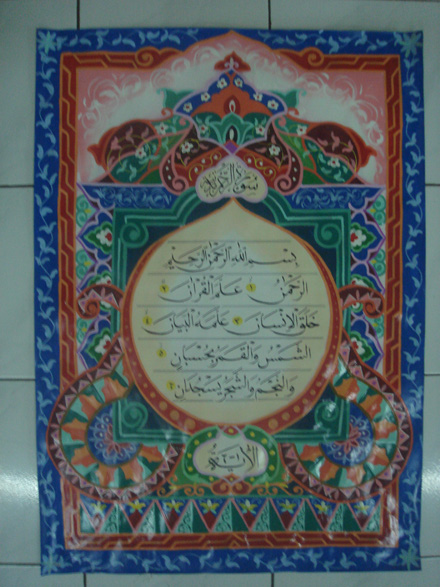 سورة
بِسْمِ اللهِ الرَّحْمٰنِ الرَّحِيْمِ
الرَّحْمٰنُ ١ عَلَّمَ الْقُرْاٰنَ ٢
خَلَقَ الْاِنْسَانَ ٣ عَلَّمَهُ الْبَيَانَ ٤
الشَّمْسُ وَالْقَمَرُ بِحُسْبَانٍ ٥
وَالنَّجْمُ وَالشَّجَرُ يَسْجُدَانِ ٦
الآية